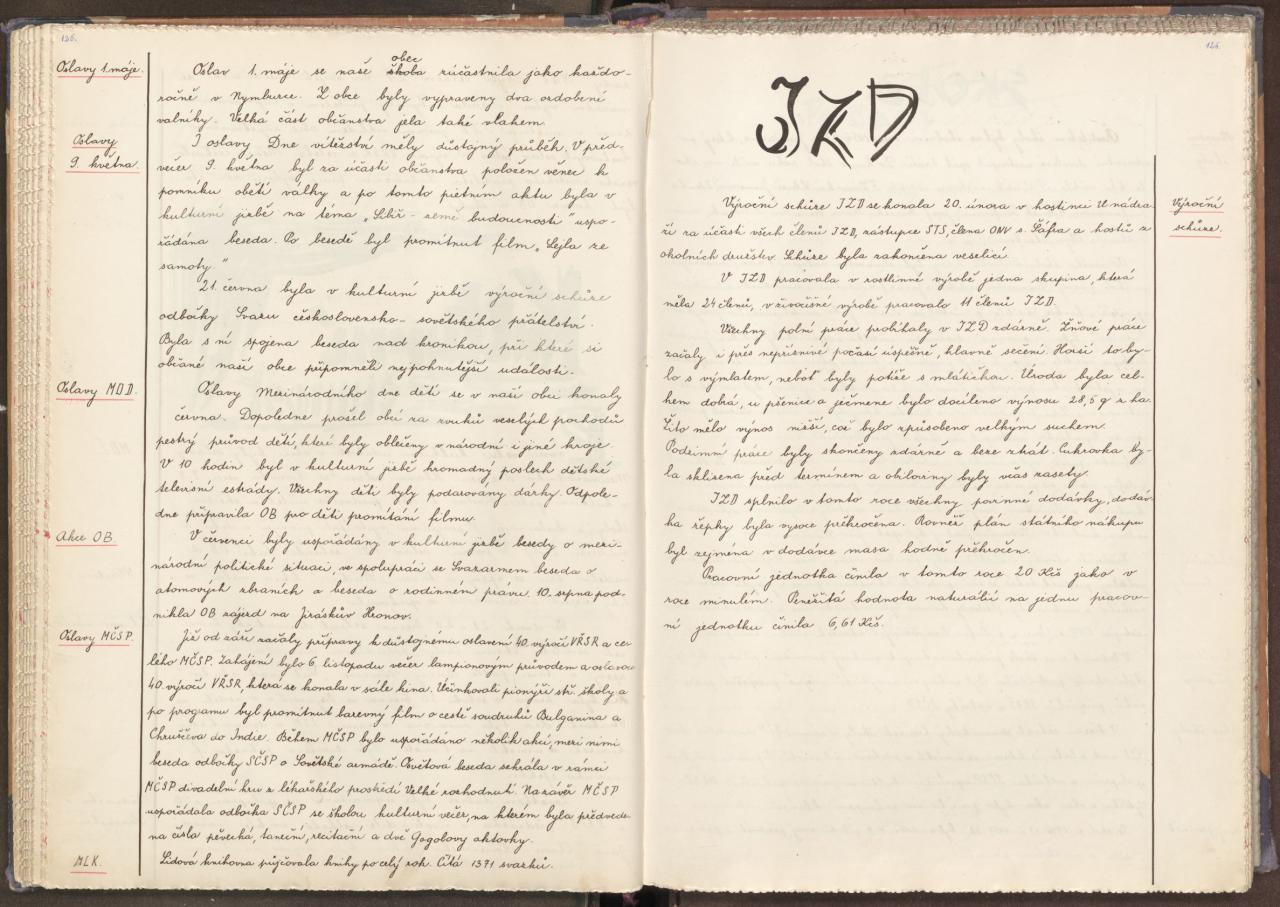 126.
Oslavy 1. máje.
Oslav 1. máje se naše škola obec zúčastnila jako každo-
ročně v Nymburce. Z obce byly vypraveny dva ozdobení
valníky. Velká část občanstva jela také vlakem.
Oslavy
9. května.
I oslavy Dne vítězství měly důstojný průběh. V před-
večer 9. května byl za účasti občanstva položen věnec k
pomníku obětí války a po tomto pietním aktu byla v
kulturní jizbě na téma „Sibiř - země budoucnosti" uspo-
řádána beseda. Po besedě byl promítnut film „Lejla ze
samoty."
21. června byla v kulturní jizbě výroční schůze
odbočky Svazu československo-sovětského přátelství.
Byla s ní spojena beseda nad kronikou, při které si
občané naší obce připomněli nejpohnutější události.
Oslavy MDD.
Oslavy Mezinárodního dne dětí se v naší obci konaly
června. Dopoledne prošel obcí za zvuků veselých pochodů
pestrý průvod dětí, které byly oblečeny v národní i jiné kroje.
V 10 hodin byl v kulturní jizbě hromadný poslech dětské
televisní estrády. Všechny děti byly podarovány dárky. Odpole-
dne připravila OB pro děti promítání filmu.
Akce OB.
V červenci byly uspořádány v kulturní jizbě besedy o mezi-
národní politické situaci, ve spolupráci se Svazarmem beseda o
atomových zbraních a beseda o rodinném právu. 10. srpna pod-
nikla OB zájezd na Jiráskův Hronov.
Oslavy MČSP.
Již od září začaly přípravy k důstojnému oslavení 40. výročí VŘSR a ce-
lého MČSP. Zahájení bylo 6. listopadu večer lampionovým průvodem a oslavou
40. výročí VŘSR, která se konala v sále kina. Účinkovali pionýři stř. školy a
po programu byl promítnut barevný film o cestě soudruhů Bulganina a
Chruščeva do Indie. Během MČSP bylo uspořádáno několik akcí, mezi nimi
beseda odbočky SČSP o Sovětské armádě. Osvětová beseda sehrála v rámci
MČSP divadelní hru z lékařského prostředí Velké rozhodnutí. Na závěr MČSP
uspořádala odbočka SČSP se školou kulturní večer, na kterém byla předvede-
na čísla pěvecká, taneční, recitační a dvě Gogolovy aktovky.
MLK.
Lidová knihovna půjčovala knihy po celý rok. Čítá 1371 svazků.
126.
JZD
Výroční schůze JZD se konala 20. února v hostinci U nádra-
ží za účasti všech členů JZD, zástupce STS, člena ONV s. Šáfra a hostů z
okolních družstev. Schůze byla zakončena veselicí.
Výroční
schůze.
V JZD pracovala v rostlinné výrobě jedna skupina, která
měla 24 členů, v živočišné výrobě pracovalo 11 členů JZD.
Všechny polní práce probíhaly v JZD zdárně. Žňové práce
začaly i přes nepříznivé počasí úspěšně, hlavně sečení. Horší to by-
lo s výmlatem, neboť byly potíže s mlátičkou. Úroda byla cel-
kem dobrá, u pšenice a ječmene bylo docíleno výnosu 28,5 q z ha.
Žito mělo výnos nižší, což bylo způsobeno velkým suchem.
Podzimní práce byly skončeny zdárně a beze ztrát. Cukrovka by-
la sklizena před termínem a obiloviny byly včas zasety.
JZD splnilo v tomto roce všechny povinné dodávky, dodáv-
ka řepky byla vysoce překročena. Rovněž plán státního nákupu
byl zejména v dodávce masa hodně překročen.
Pracovní jednotka činila v tomto roce 20 Kčs jako v
roce minulém. Peněžitá hodnota naturálií na jednu pracov-
ní jednotku činila 6,61 Kčs.